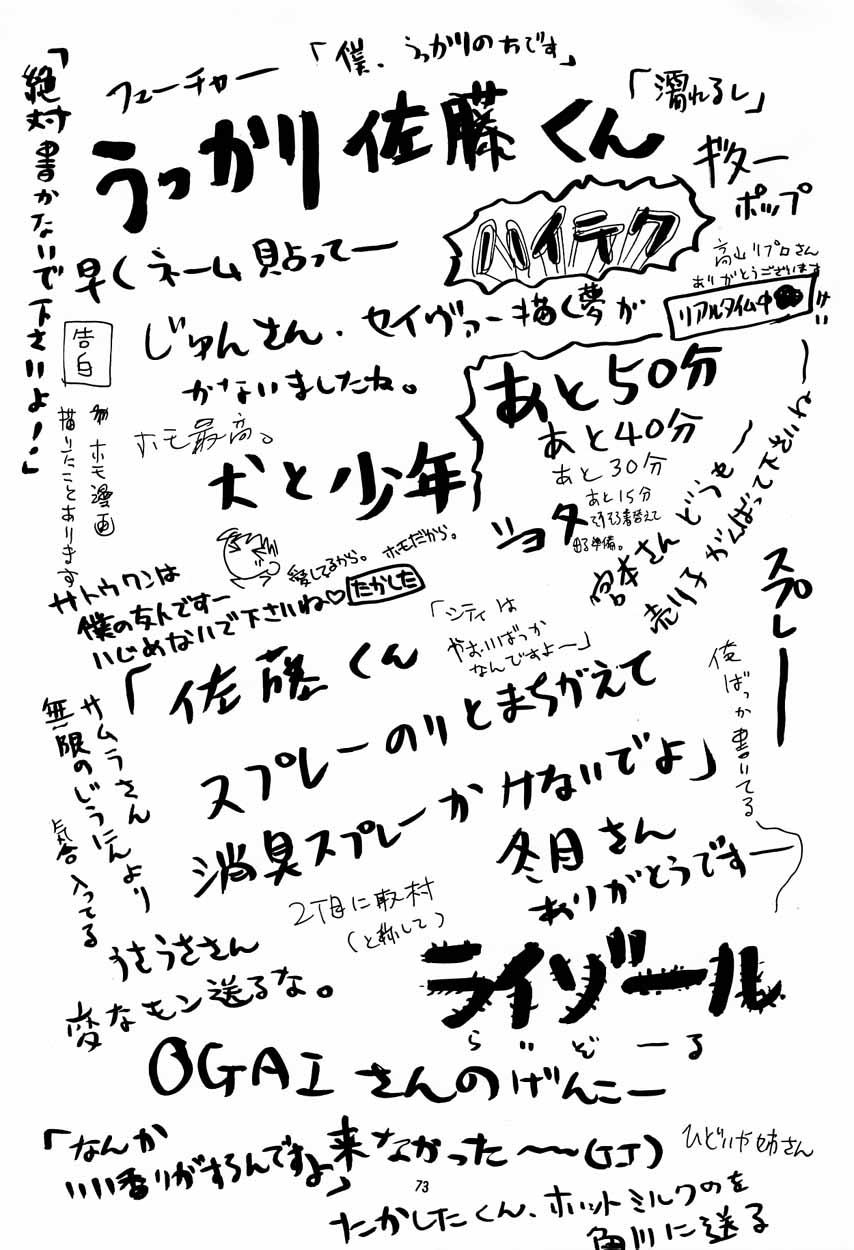 「僕、うっかりのちです」
フューチャー
「濡れるし」
「絶対書かないで下さいよ!」
うっかり佐藤くん
ギター
ポップ
ハイテク
早くネーム貼ってー
高山リプロさん
ありがとうございます
リアルタイム中
じゅんさん、セイヴァー描く夢が
かないましたね。
告白
ホモ漫画
描いたことあります
あと50分
あと40分
あと30分
あと15分
そろそろ着替えて
出る準備。
ホモ最高。
犬と少年
ショタ
宮本さんどうもー
売り子がんばって下さいねー
愛してるから。ホモだから。
サトウワンは
僕の友人ですー
いじめないで下さいね♡
たかした
「シティは
やおいばっか
なんですよー」
スプレー
俺ばっか書いてる
「佐藤くん
スプレーのりとまちがえて
消臭スプレーかけないでよ」
サムラさん
無限のじうにんより
気合入ってる
冬月さん
ありがとうですー
2丁目に取材
(と称して)
うさうささん
変なモン送るな。
ライゾール
らいぞーる
OGAIさんのげんこー
来なかった~~(GJ)
「なんか
いい香りがするんですよ」
ひどいや姉さん
73
たかしたくん、ホットミルクのを
角川に送る